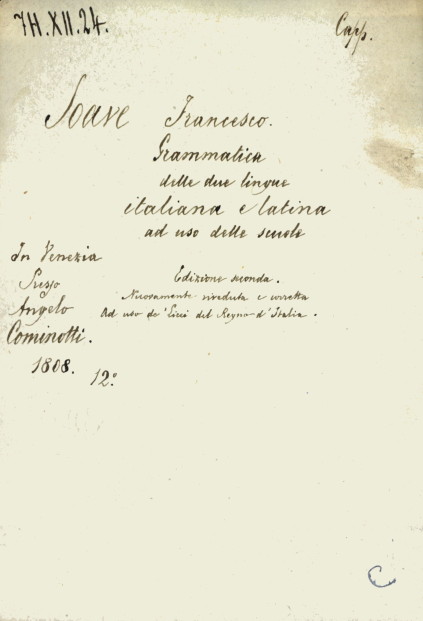 7H.XII.24.
Capp.
Soave Francesco.
Grammatica
delle due lingue
italiana e latina
ad uso delle scuole
In Venezia
Presso
Angelo
Cominotti.
1808.
12°.
Edizione seconda.
Nuovamente riveduta e corretta
Ad uso de' Licei del Regno d'Italia.
C